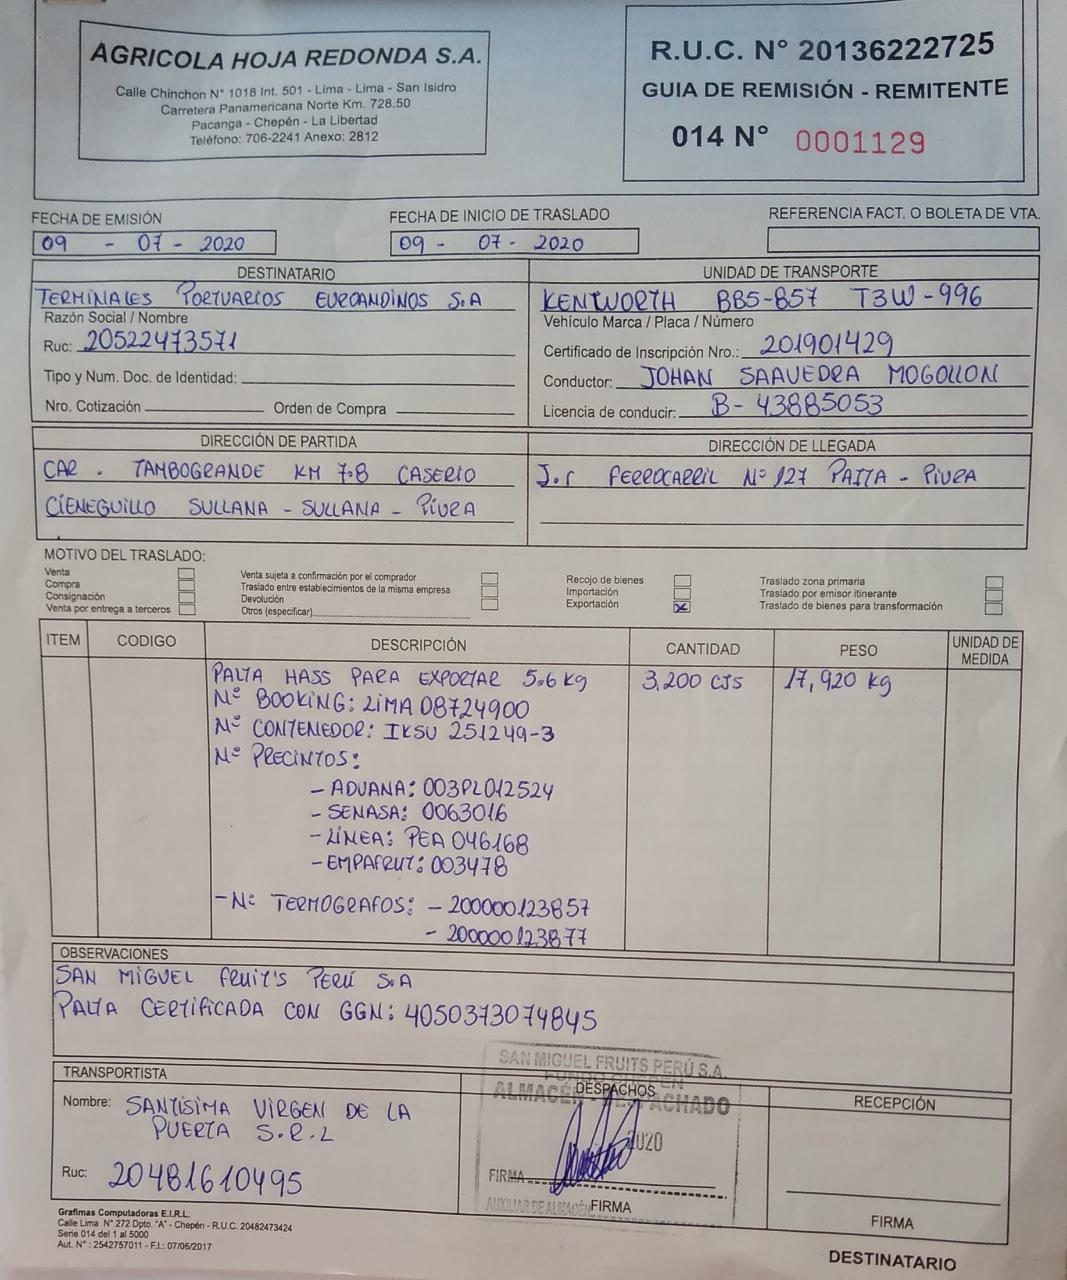 AGRICOLA HOJA REDONDA S.A.
Calle Chinchon N° 1018 Int. 501 - Lima - Lima - San Isidro
Carretera Panamericana Norte Km. 728.50
Pacanga - Chepén - La Libertad
Teléfono: 706-2241 Anexo: 2812
R.U.C. N° 20136222725
GUIA DE REMISIÓN - REMITENTE
014 N° 0001129
FECHA DE EMISIÓN
09 - 07 - 2020
FECHA DE INICIO DE TRASLADO
09 - 07 - 2020
REFERENCIA FACT. O BOLETA DE VTA.
DESTINATARIO
TERMINALES PORTUARIOS EUROANDINOS S.A
Razón Social / Nombre
Ruc: 20522473571
Tipo y Num. Doc. de Identidad:
Nro. Cotización Orden de Compra
UNIDAD DE TRANSPORTE
KENTWORTH BB5-857 T3W-996
Vehículo Marca / Placa / Número
Certificado de Inscripción Nro.: 201901429
Conductor: JOHAN SAAVEDRA MOGOLLON
Licencia de conducir: B-43885053
DIRECCIÓN DE PARTIDA
CAR. TAMBOGRANDE KM 7.8 CASERIO
CIENEGUILLO SULLANA - SULLANA - PIURA
DIRECCIÓN DE LLEGADA
J.r FERROCARRIL N° 127 PAITA - PIURA
MOTIVO DEL TRASLADO:
Venta
Compra
Consignación
Venta por entrega a terceros
Venta sujeta a confirmación por el comprador
Traslado entre establecimientos de la misma empresa
Devolución
Otros (especificar)
Recojo de bienes
Importación
Exportación X
Traslado zona primaria
Traslado por emisor itinerante
Traslado de bienes para transformación
ITEM CODIGO DESCRIPCIÓN CANTIDAD PESO UNIDAD DE MEDIDA
PALTA HASS PARA EXPORTAR 5.6 kg 3,200 CJS 17,920 kg
N° BOOKING: LIMA 08724900
N° CONTENEDOR: IKSU 251249-3
N° PRECINTOS:
- ADUANA: 003PL012524
- SENASA: 0063016
- LÍNEA: PEA 046168
- EMPAFRUT: 003478
- N° TERMOGRAFOS: - 200000123857
- 200000123877
OBSERVACIONES
SAN MIGUEL FRUIT'S PERÚ S.A
PALTA CERTIFICADA CON GGN: 4050373074845
TRANSPORTISTA
Nombre: SANTISIMA VIRGEN DE LA
PUERTA S.R.L
Ruc: 20481610495
SAN MIGUEL FRUITS PERÚ S.A.
DESPACHOS
ALMACÉN
2020
FIRMA
AUXILIAR DE ALMACÉN
FIRMA
RECEPCIÓN
FIRMA
Grafimas Computadoras E.I.R.L.
Calle Lima N° 272 Dpto. "A" - Chepén - R.U.C. 20482473424
Serie 014 del 1 al 5000
Aut. N° : 2542757011 - F.I.: 07/06/2017
DESTINATARIO